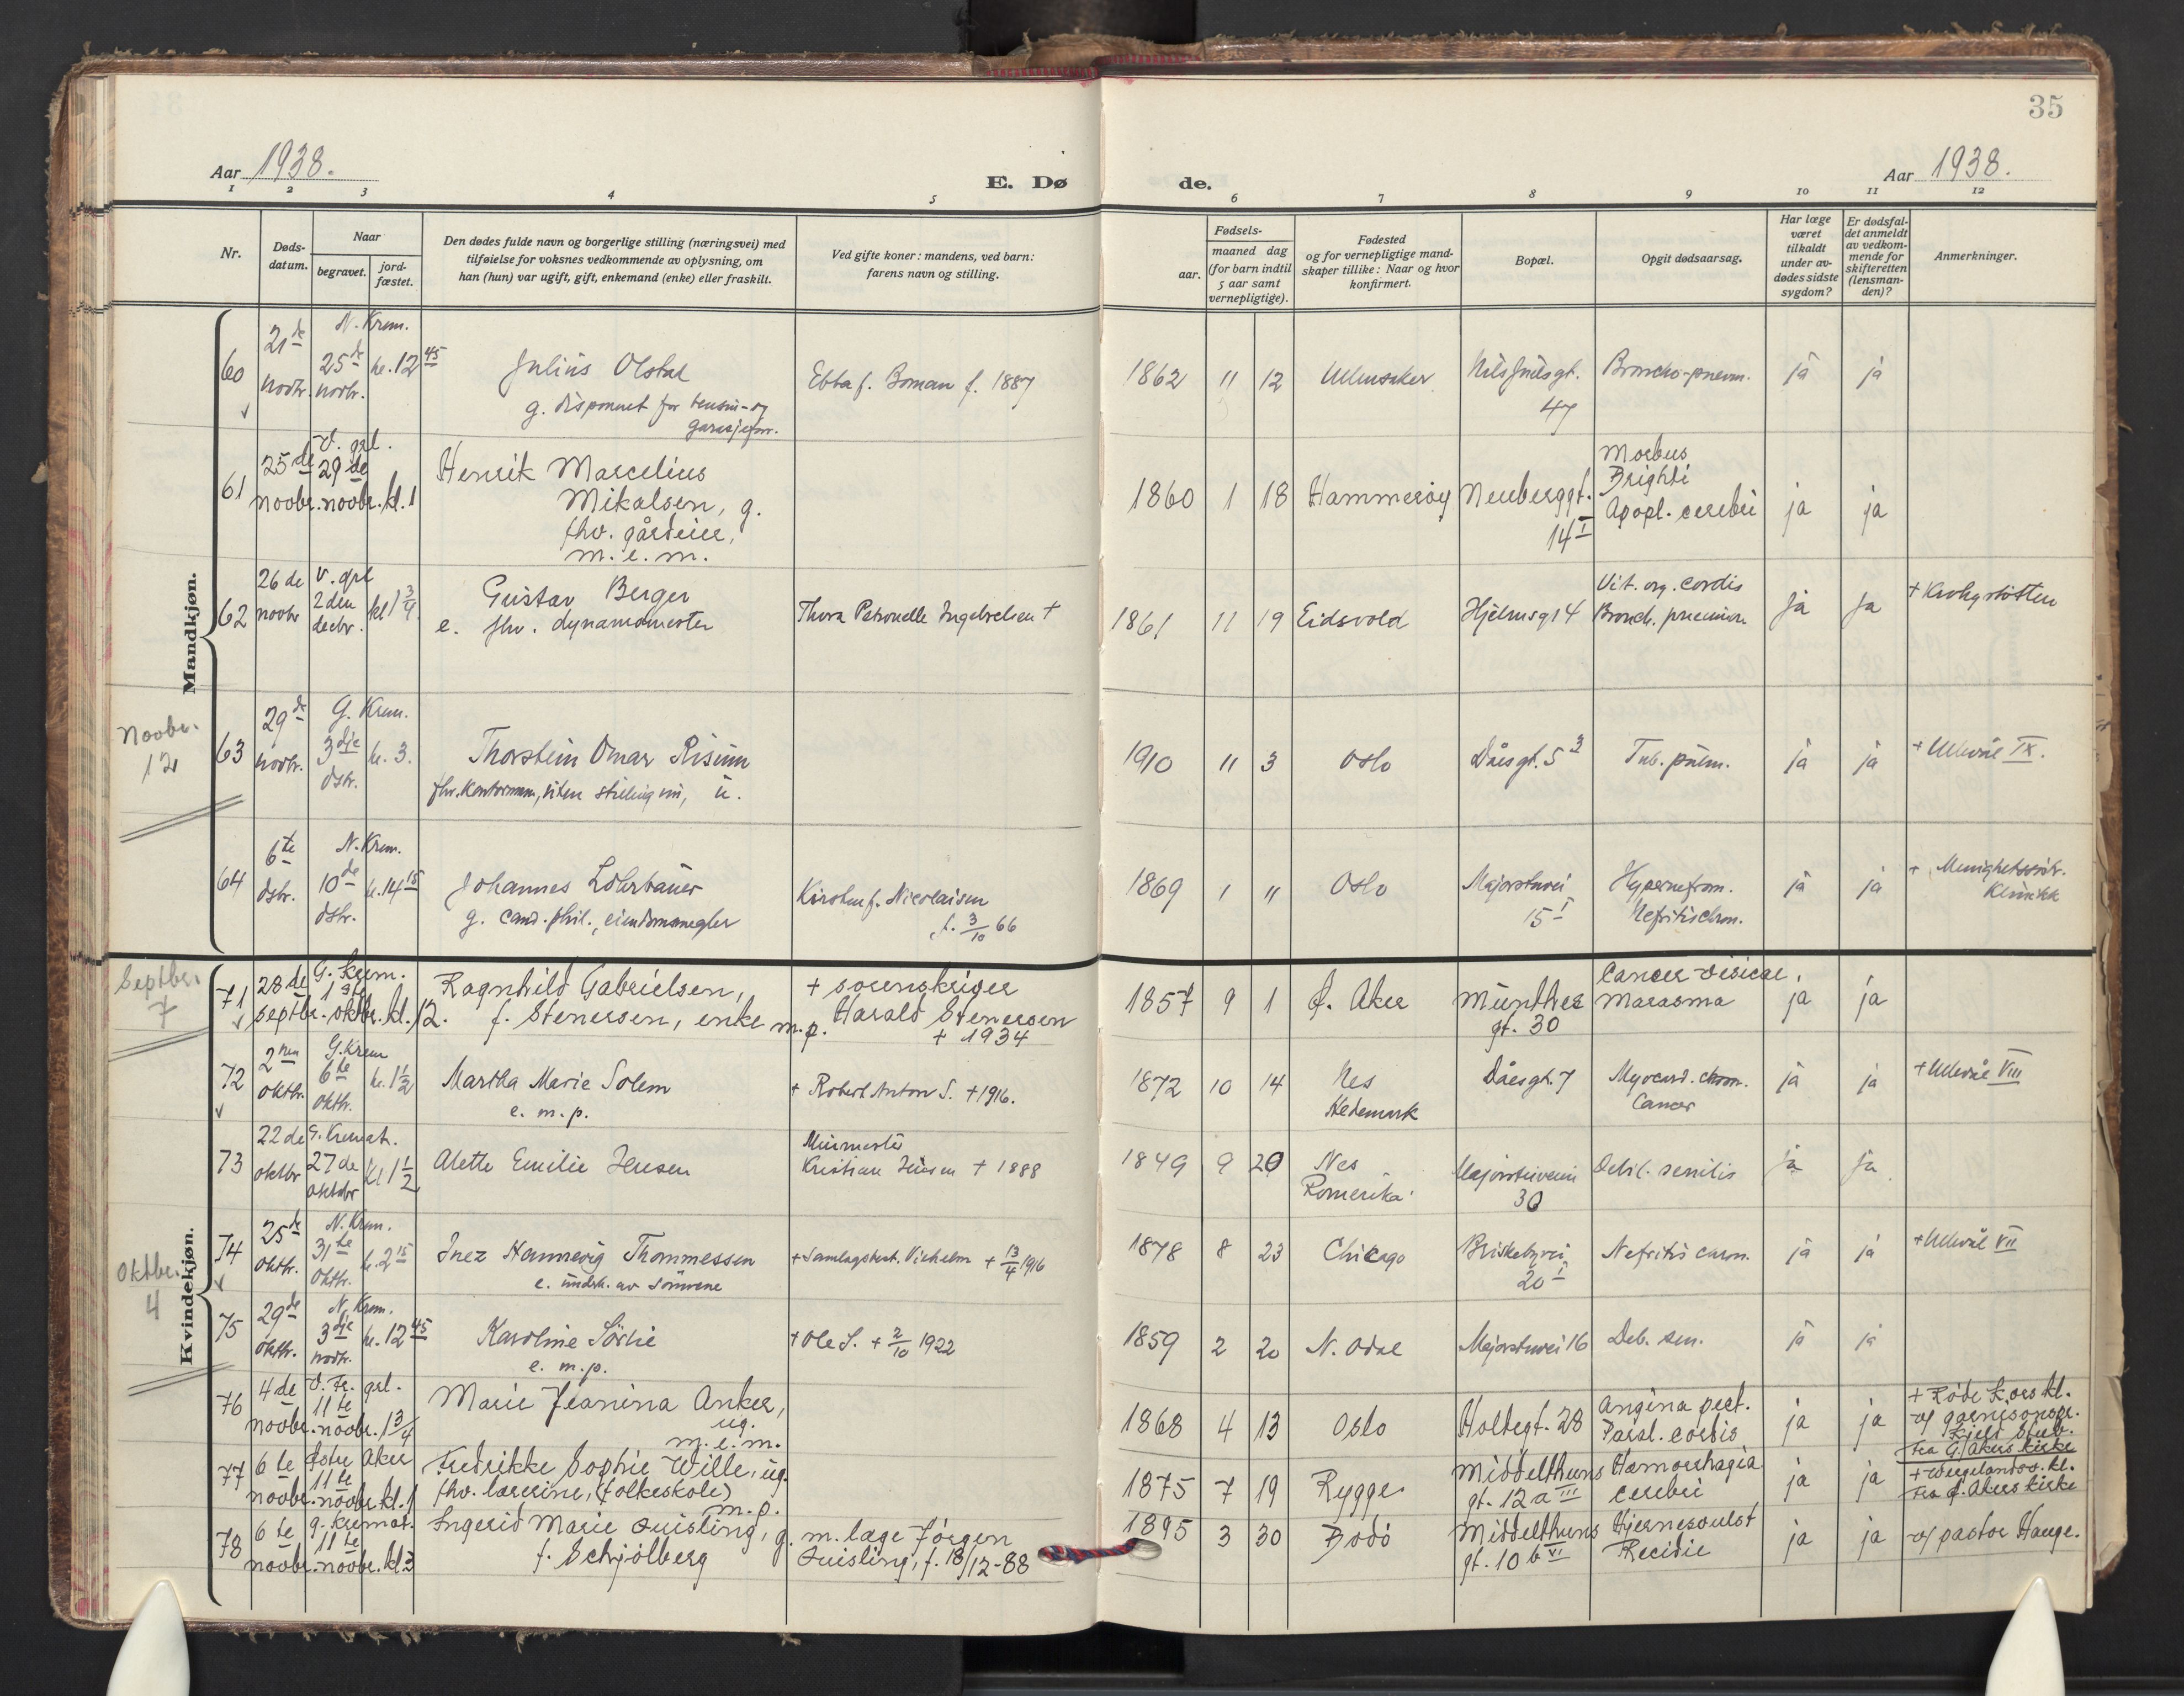 35
Aar 1938.
E. Dø
de.
Aar 1938.
1 2 3 4 5 6 7 8 9 10 11 12
Nr.
Døds-
datum.
Naar
begravet.
jord-
fæstet.
Den dødes fulde navn og borgerlige stilling (næringsvei) med
tilføielse for voksnes vedkommende av oplysning, om
han (hun) var ugift, gift, enkemand (enke) eller fraskilt.
Ved gifte koner: mandens, ved barn:
farens navn og stilling.
Fødsels-
aar.
maaned dag
(for barn indtil
5 aar samt
vernepligtige).
Fødested
og for vernepligtige mand-
skaper tillike: Naar og hvor
konfirmert.
Bopæl.
Opgit dødsaarsag.
Har læge
været
tilkaldt
under av-
dødes sidste
sygdom?
Er dødsfal-
det anmeldt
av vedkom-
mende for
skifteretten
(lensman-
den)?
Anmerkninger.
Mandkjøn.
60 21de novbr. N. Krem. 25de novbr. kl. 12 45
Julius Olstad
g. disponent for bensin- og
garasjefor.
Ebba f. Boman f. 1887
1862 11 12 Ullensaker Nils Juelsgt. 47 Broncho-pneum. ja ja
61 25de novbr. V. grl. 29de novbr. kl. 1
Henrik Marcelius
Mikalsen, g.
fhv. gårdeier,
m.e.m.
1860 1 18 Hammerøy Neuberggt. 14 I
Morbus
Brighti
Apopl. cerebri ja ja
62 26de novbr V. grl 2den decbr. kl 1 3/4
Gustav Berger
e. fhv. dynamomester
Thora Petronelle Ingebretsen +
1861 11 19 Eidsvold Hjelmsgt 4
Vit. org. cordis
Bronch. pneumon ja ja
+ Krohgstøtten
Novbr.
12
63 29de novbr. G. Krem. 3dje dsbr. kl. 3.
Thorstein Omar Risum
fhv. kontormann, uten stilling nu, u.
1910 11 3 Oslo Daasgt. 5 3 Tub. pulm. ja ja + Ullevål IX.
64 6te dsbr. N. Krem. 10de dsbr. kl. 14 15
Johannes Lohrbauer
g. cand. phil., eiendomsmegler
Kirsten f. Nicolaisen
f. 3/10 66
1869 1 11 Oslo Majorstuvei 15 I
Hypernefrom.
Nefritis chron. ja ja
+ Menighetssøstr.
Klinikk
Kvindekjøn.
Septbr.
7
71 28de septbr. G. krem. 1ste oktbr. kl. 12.
Ragnhild Gabrielsen,
f. Stenersen, enke m.p.
+ sorenskriver
Harald Stenersen
+ 1934
1857 9 1 Ø. Aker Munthes gt. 30
Cancer vesicae.
Marasma ja ja
72 2nen oktbr. G. Krem 6te oktbr. kl. 1 1/2
Martha Marie Solem
e. m.p.
+ Robert Anton S. + 1916.
1872 10 14 Nes
Hedemark
Daasgt. 7
Myocard. chron.
Cancer ja ja + Ullevål VIII
73 22de oktbr G. Kremat. 27de oktobr kl 1 1/2
Alette Emilie Jensen
Murmester
Kristian Jensen + 1888
1849 9 20 Nes
Romerike
Majorstuveien
30
Debil. senilis ja ja
Oktbr.
4
74 25de oktbr. N. Krem. 31te oktbr. kl. 2 15
Inez Hannevig Thommessen
e. underh. av sønnene
+ Samlagsbest. Vilhelm + 13/4 1916
1878 8 23 Chicago Briskebyvei
20 I
Nefritis chron. ja ja + Ullevål VII
75 29de oktbr. N. Krem. 3dje novbr. kl. 12 45
Karoline Sørlie
e. m.p.
+ Ole S. + 2/10 1922
1859 2 20 N. Odal Majorstuvei 16 Deb. sen. ja ja
76 4de novbr. V. Fr. grl. 11te novbr. 1 3/4
Marie Jeanina Anker,
ug.
m.e.m.
1868 4 13 Oslo Holtegt. 28
Angina pect.
Paral. cordis ja ja
+ Røde Kors kl.
v/ garnisonspr.
Kjeld Stub.
fra G. Akers kirke
77 6te novbr. Østre Aker 11te novbr. kl. 1
Fredrikke Sophie Wille, ug.
fhv. lærerinne, (folkeskole)
m.p.
1875 7 19 Rygge Middelthuns
gt. 12 a III
Hæmorrhagia
cerebri ja ja
+ Wergelandsv. kl.
fra Ø. Akers kirke
78 6te novbr. G. kremat. 11te novbr. kl 3
Ingerid Marie Quisling, g.
f. Schjølberg
m. læge Jørgen
Quisling, f. 18/12-88
1895 3 30 Bodø Middelthuns
gt. 10 b VI
Hjernesvulst
Recidiv ja ja v/ pastor Hauge.